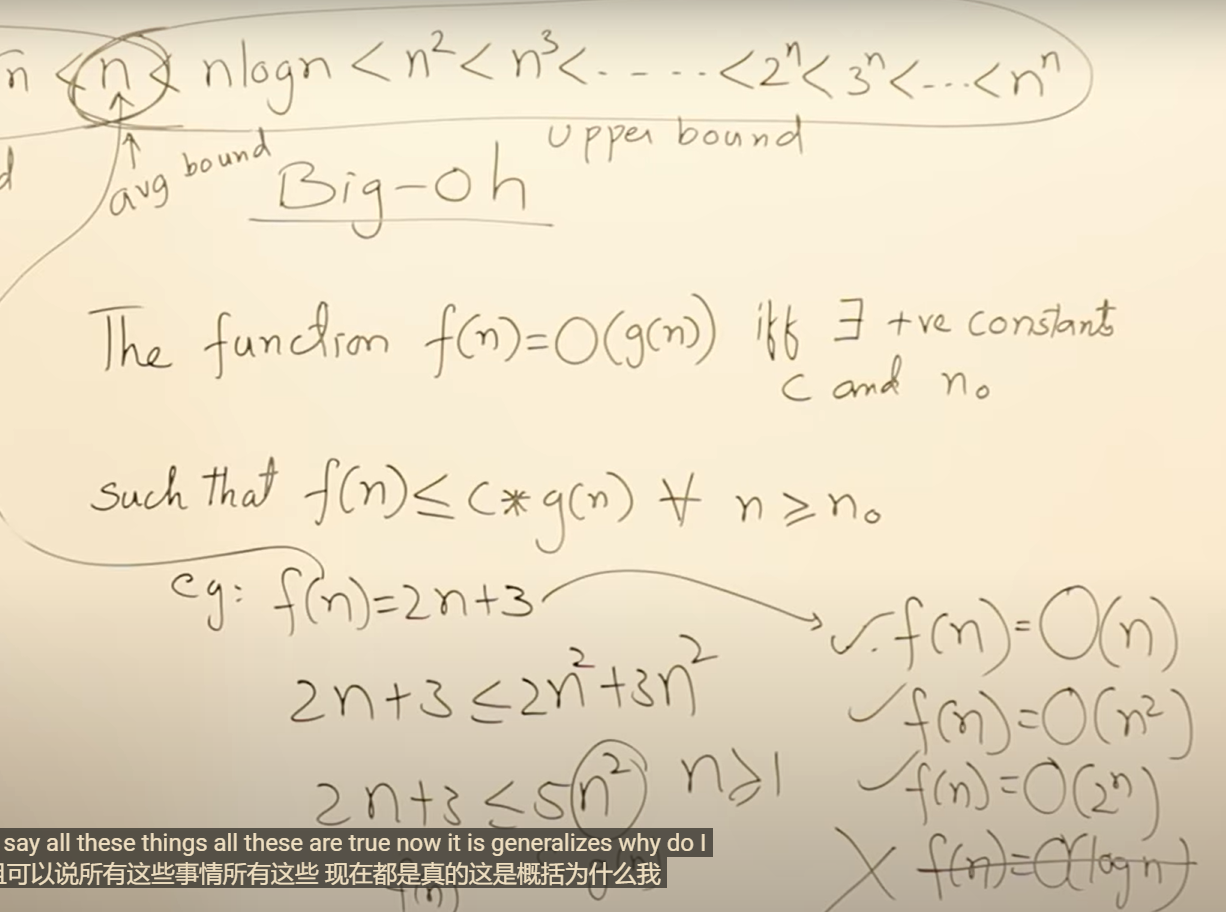 n < n < nlogn < n² < n³ < - - - - - < 2ⁿ < 3ⁿ < ... < nⁿ
avg bound
Upper bound
Big-Oh
The function f(n)=O(g(n)) iff ∃ +ve constant
c and n₀
such that f(n) ≤ c*g(n) ∀ n ≥ n₀
eg: f(n)=2n+3
✓. f(n)=O(n)
2n+3 ≤ 2n²+3n²
✓ f(n)=O(n²)
2n+3 ≤ 5n² n≥1
✓ f(n)=O(2ⁿ)
say all these things all these are true now it is generalizes why do I
可以说所有这些事情所有这些 现在都是真的这是概括为什么我
f(n) g(n)
X f(n)=O(logn)